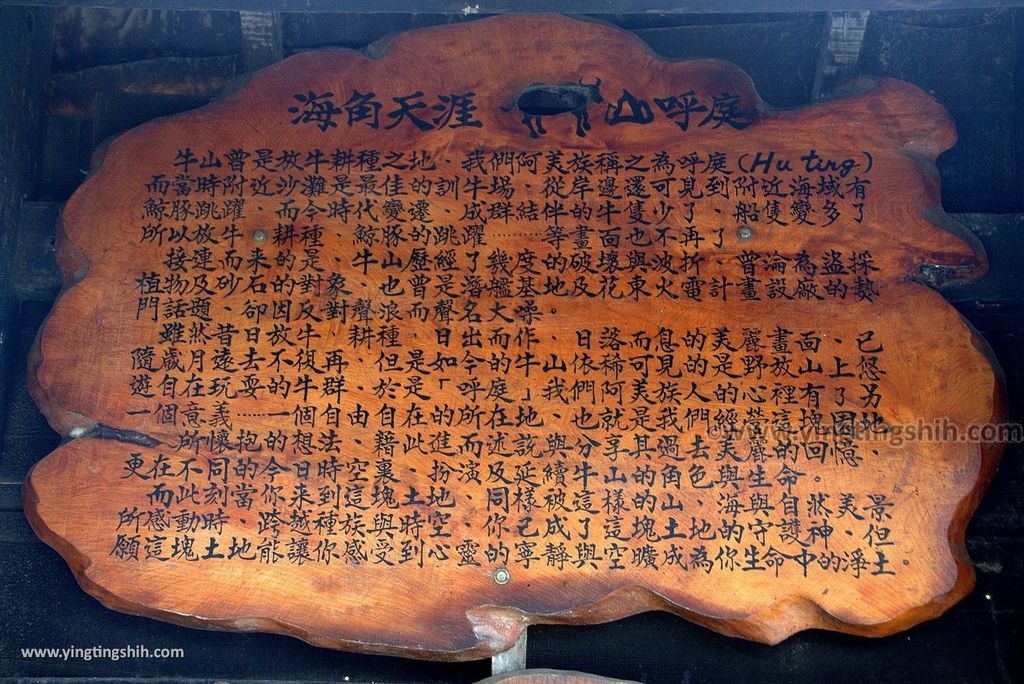 海角天涯 山呼庭
牛山曾是放牛耕種之地、我們阿美族稱之為呼庭(Hu ting)
而當時附近沙灘是最佳的訓牛場、從岸邊還可見到附近海域有
鯨豚跳躍、而今時代變遷、成群結伴的牛隻少了、船隻變多了
所以放牛、耕種、鯨豚的跳躍……等畫面也不再了
接連而來的是、牛山歷經了幾度的破壞與波折、曾淪為盜採
植物及砂石的對象、也曾是潛艦基地及花東火電計畫設廠的熱
門話題、卻因反對聲浪而聲名大噪。
雖然昔日放牛、耕種、日出而作、日落而息的美麗畫面、已
隨歲月遠去不復再、但是如今的牛山依稀可見的是野放山上悠
遊自在玩耍的牛群、於是「呼庭」我們阿美人的心裡有了另
一個意義……一個自由自在的所在地、也就是我們經營這塊地
所懷抱的想法、藉此進而述說與分享其過去美麗的回憶、
更在不同的今日時空裏、扮演及延續牛山的角色與生命。
而此刻當你來到這塊土地、同樣被這樣的山、海與自然美景
所感動時、跨越種族與時空、你已成了這塊土地的守護神、但
願這塊土地能讓你感受到心靈的寧靜與空曠成為你生命中的淨土。
©www.yingtingshih.com
www.yingtingshih.com